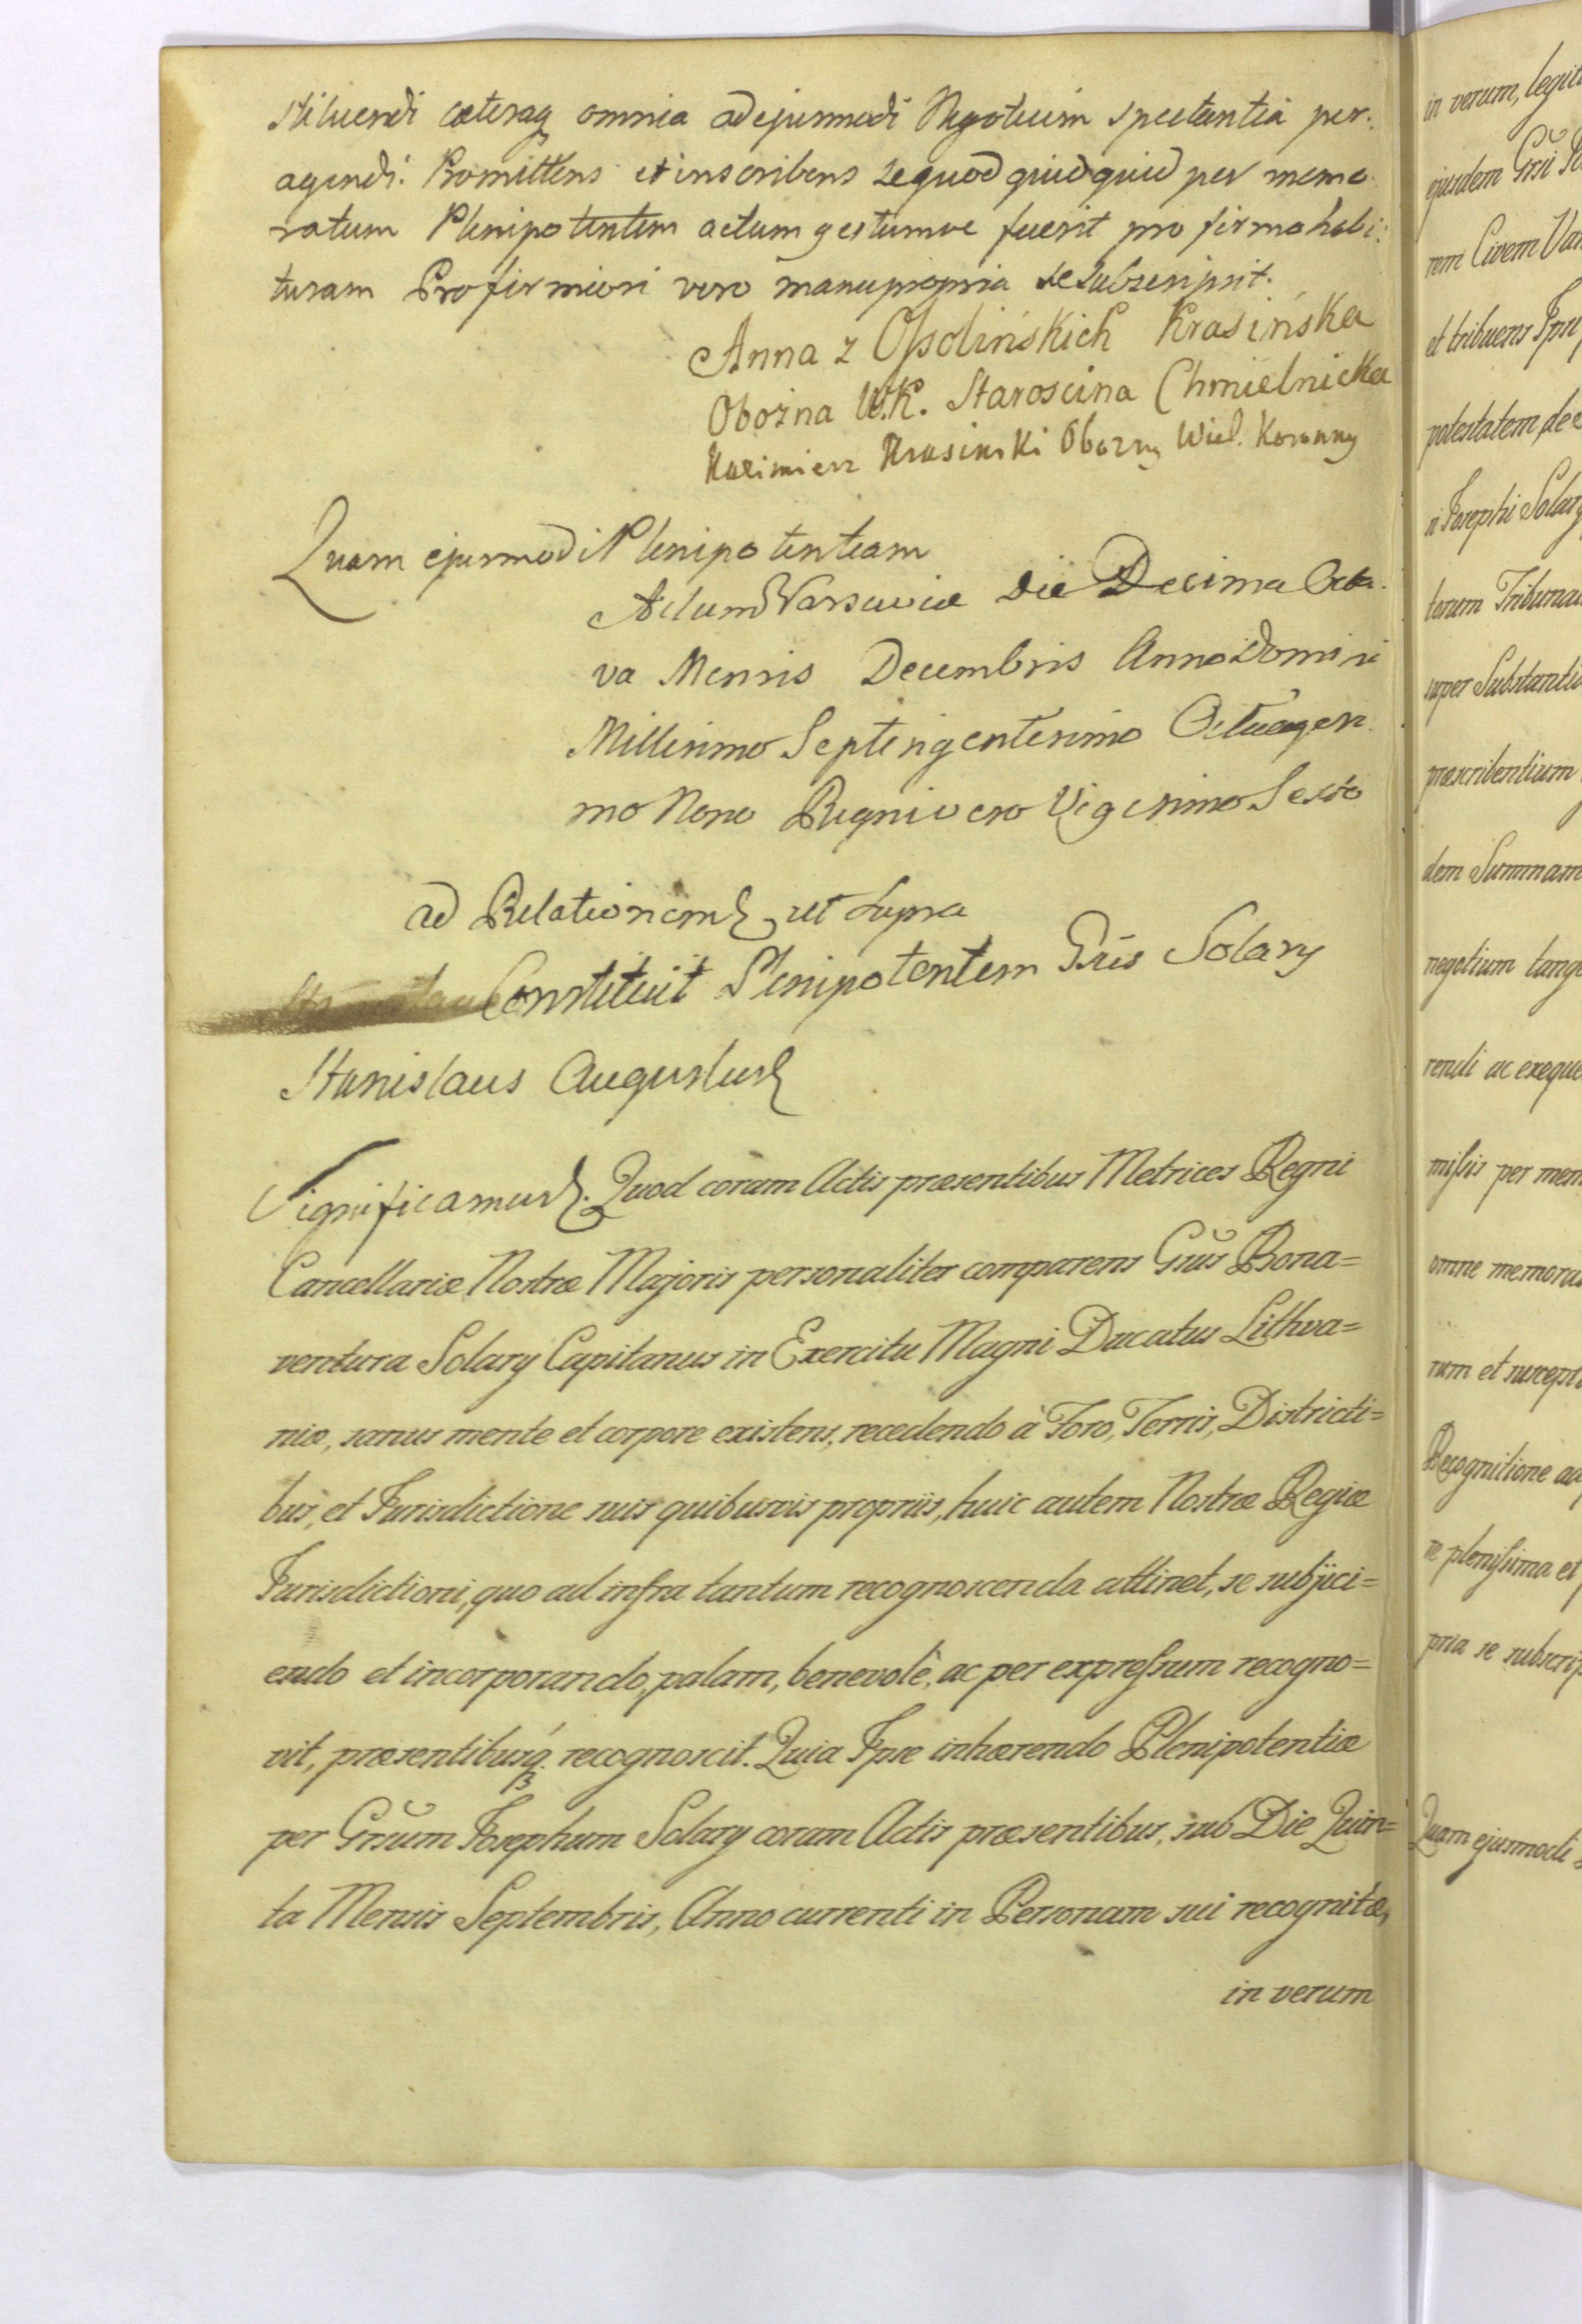 stituendi cæteraq omnia ad ejusmodi Negotium spectantia per:
agendi. Promittens et inscribens se quod quidquid per memo:
ratum Plenipotentem actum gestumve fuerit pro firmo habi:
turam Pro firmiori vero manu propria se subscripsit.
Anna z Ossolińskich Krasińska
Obozna W.K. Staroscina Chmielnicka
Kazimierz Krasinski Obozny Wiel. Koronny
Quam ejusmodi Plenipotentiam
Actum Varsaviæ Die Decima Octa
va Mensis Decembris Anno Domini
Millesimo Septingentesimo Octuagesi
mo Nono Regni vero Vigesimo Sexto
ad Relationem ut supra
Constituit Plenipotentem Grūs Solary
Stanislaus Augustus
Significamus. Quod coram Actis præsentibus Metrices Regni
Cancellariæ Nostræ Majoris personaliter comparens Grūs Bona=
ventura Solary Capitanus in Exercitu Magni Ducatus Lithva=
niæ, sanus mente et corpore existens, recedendo à Foro, Terris, Districti=
bus, et Jurisdictione suis quibusvis propriis, huic autem Nostræ Regiæ
Jurisdictioni, quo ad infra tantum recognoscenda attinet, se subjici=
endo et incorporando, palam, benevolè, ac per expressum recogno=
vit, præsentibusq. recognoscit. Quia Ipse inhærendo Plenipotentiæ
per Grsum Josephum Solary coram Actis præsentibus, sub Die Quin=
ta Mensis Septembris, Anno currenti in Personam sui recognitæ,
in verum
in verum,
ejusdem Grsi
rem Civem
et tribuens
potestatem
Josephi Solary
super
præscribentium
dem Summam
negotium
rendi ac
per
omne
rum et
Recognitione
plenissima et
pria se
Quam ejusmodi